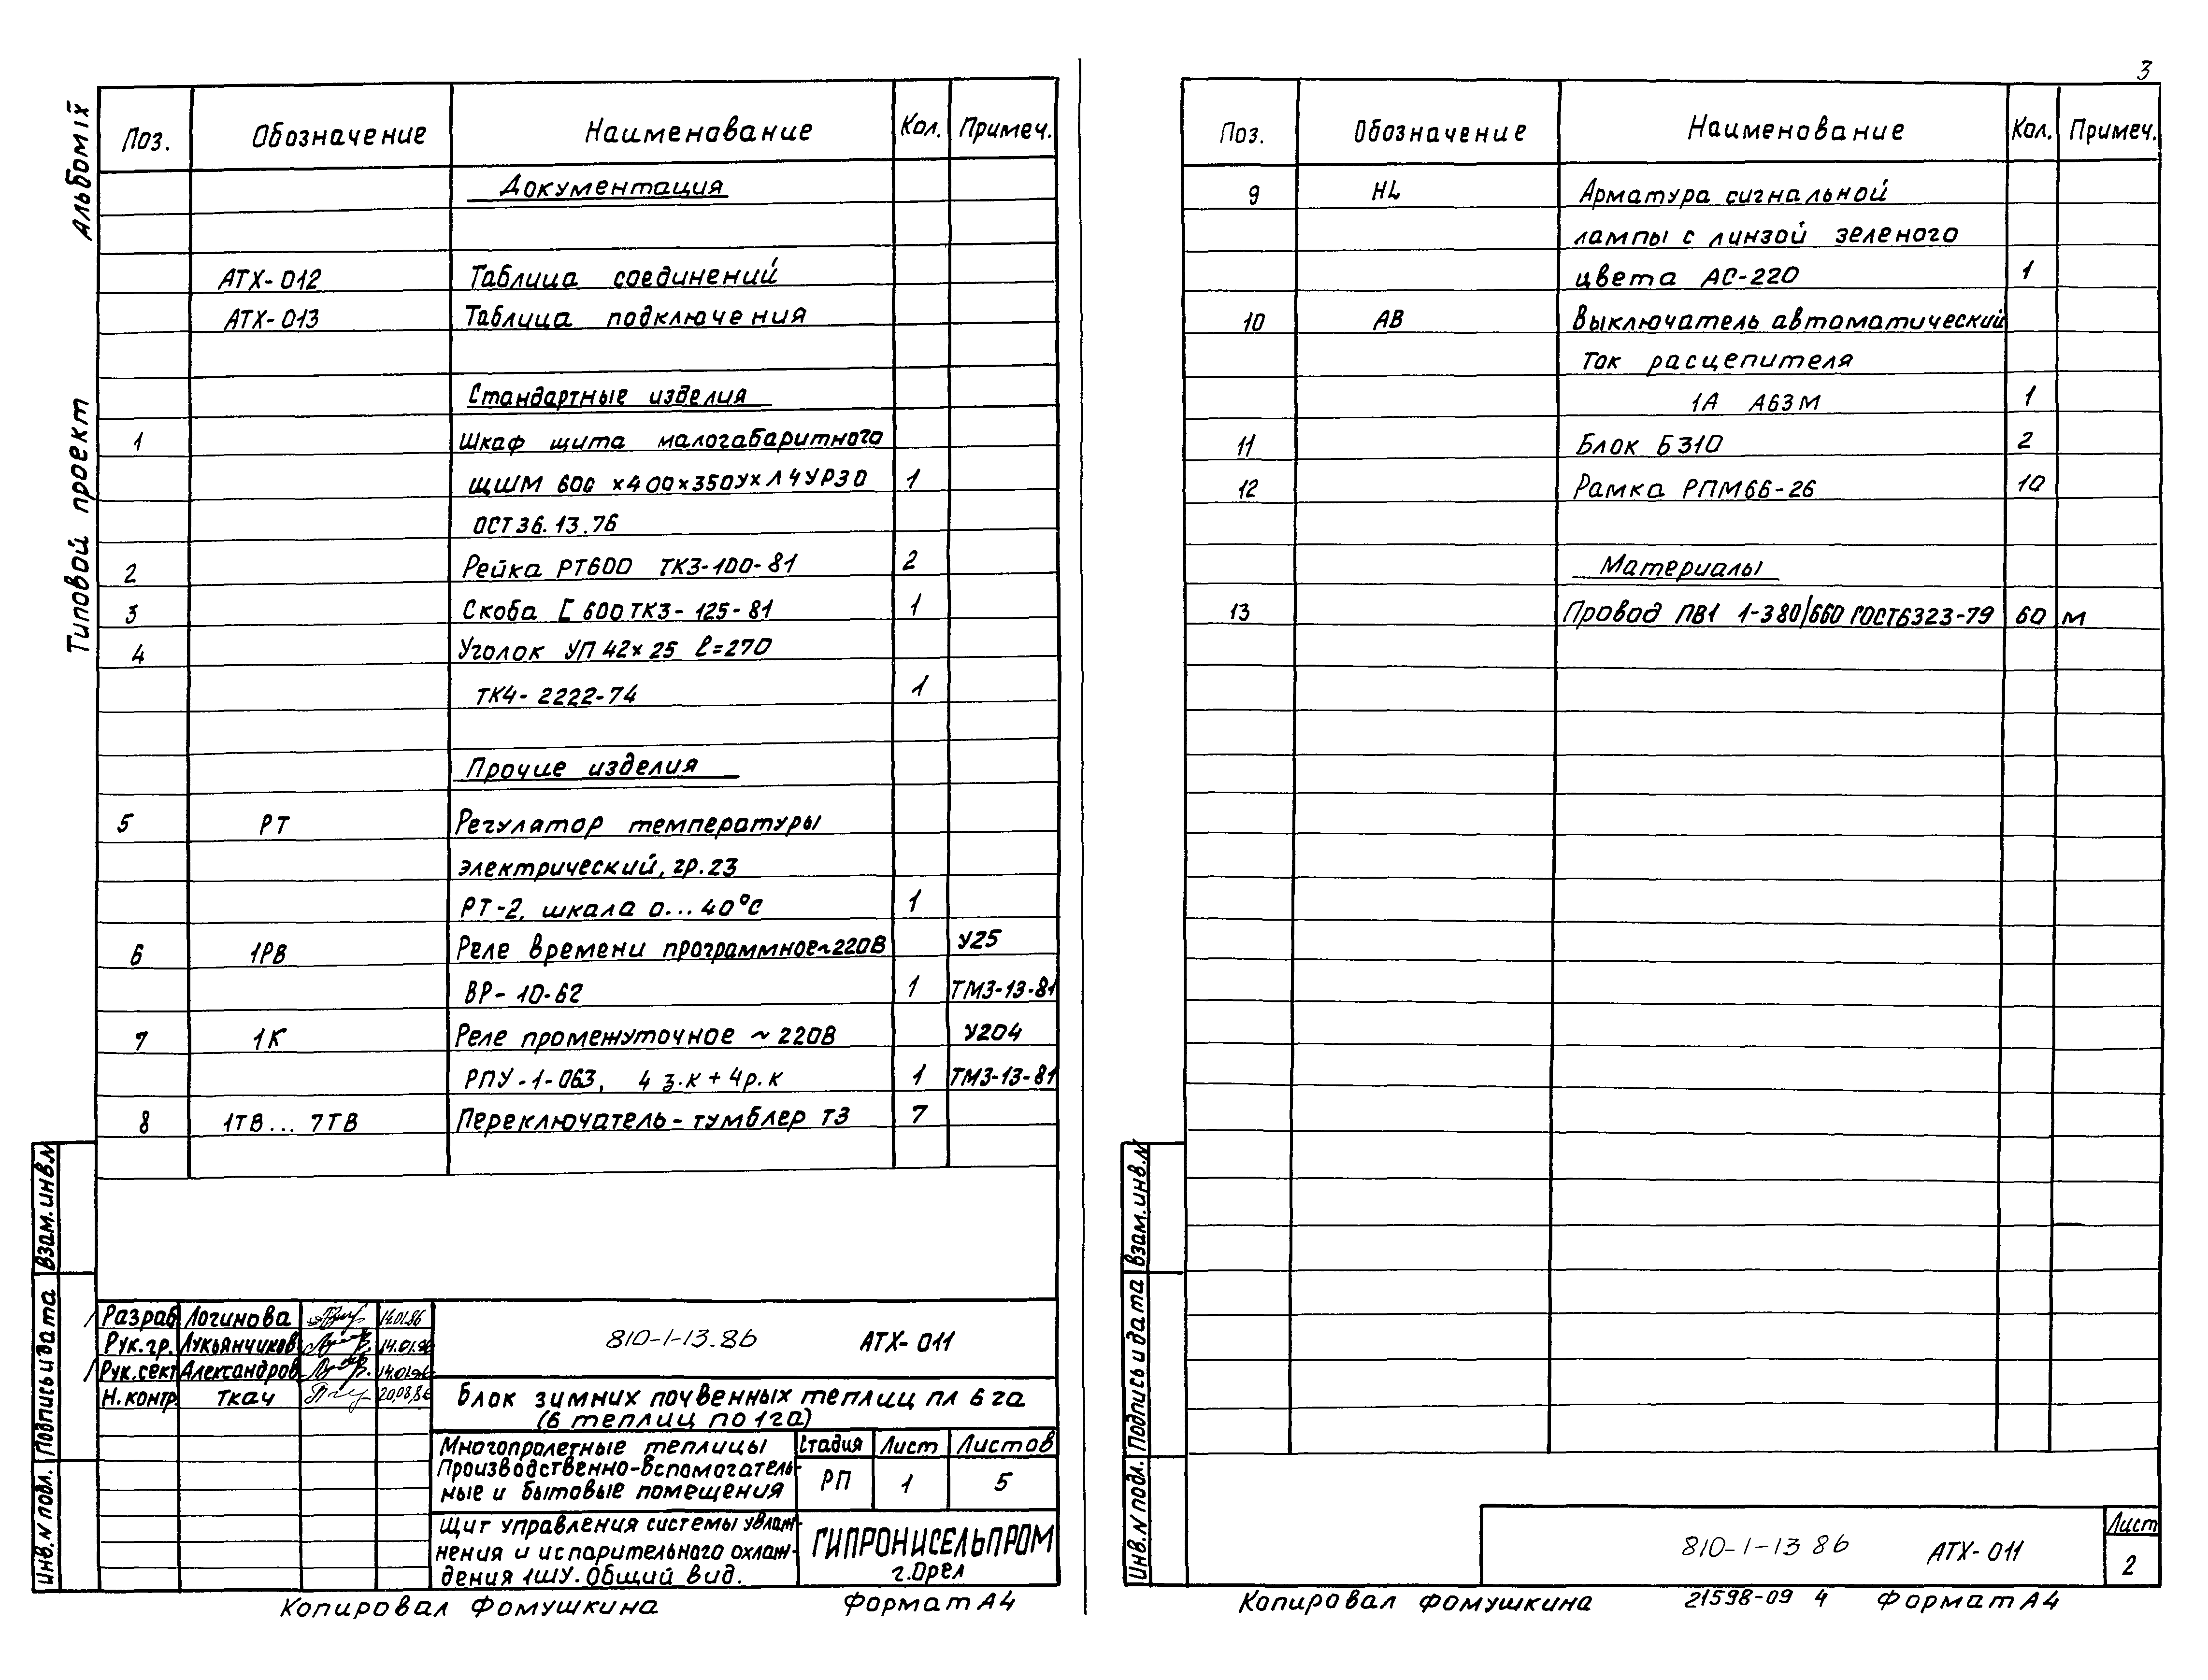 Альбом IX
Типовой проект
Поз. Обозначение Наименование Кол. Примеч.
Документация
АТХ-012 Таблица соединений
АТХ-013 Таблица подключения
Стандартные изделия
1 Шкаф щита малогабаритного
ЩШМ 600 х400х350УхЛ4УР30 1
ОСТ36.13.76
2 Рейка РТ600 ТК3-100-81 2
3 Скоба [ 600 ТК3-125-81 1
4 Уголок УП 42х25 ℓ=270
ТК4-2222-74 1
Прочие изделия
5 РТ Регулятор температуры
электрический, гр.23
РТ-2, шкала 0...40°С 1
6 1РВ Реле времени программное~220В У25
ВР-10-62 1 ТМ3-13-81
7 1К Реле промежуточное ~220В У204
РПУ-1-063, 4 з.к+4р.к 1 ТМ3-13-81
8 1ТВ... 7ТВ Переключатель-тумблер Т3 7
Взам.инв.N
Подпись и дата
Инв.N подл.
Разраб Логинова 14.01.86
Рук.гр. Лукьянчиков 14.01.86
Рук.сект Александров 14.01.86
Н.контр. Ткач 20.08.86
810-1-13.86 АТХ-011
Блок зимних почвенных теплиц пл 6 га
(6 теплиц по 1га)
Многопролетные теплицы
Производственно-вспомогатель-
ные и бытовые помещения
Стадия Лист Листов
РП 1 5
Щит управления системы увлаж-
нения и испарительного охлаж-
дения 1ШУ. Общий вид.
ГИПРОНИСЕЛЬПРОМ
г.Орел
Копировал Фомушкина Формат А4
3
Поз. Обозначение Наименование Кол. Примеч.
9 HL Арматура сигнальной
лампы с линзой зеленого
цвета АС-220 1
10 АВ Выключатель автоматический
ток расцепителя
1А А63М 1
11 Блок Б310 2
12 Рамка РПМ66-26 10
Материалы
13 Провод ПВ1 1-380/660 ГОСТ6323-79 60 м
Взам.инв.N
Подпись и дата
Инв.N подл.
810-1-13 86 АТХ-011
Лист
2
Копировал Фомушкина 21598-09 4 Формат А4